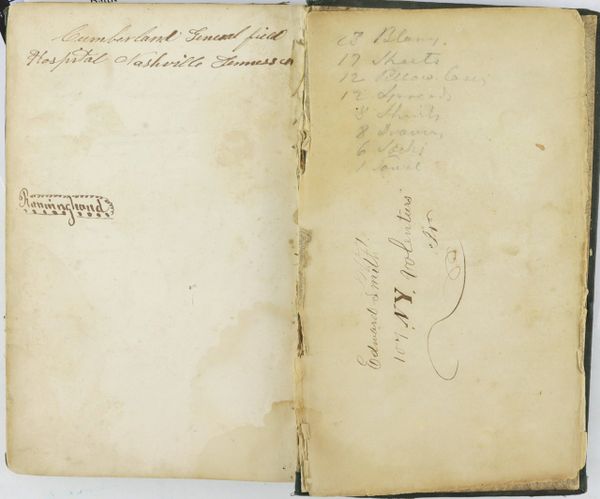 Cumberland General field
Hospital Nashville Tennessee
Running hand
17 Sheets
12 Pillow Cases
12 Spreads
8 Shirts
8 Drawers
6 Socks
1 Towel
Edward Smith
107 NY Volentiers